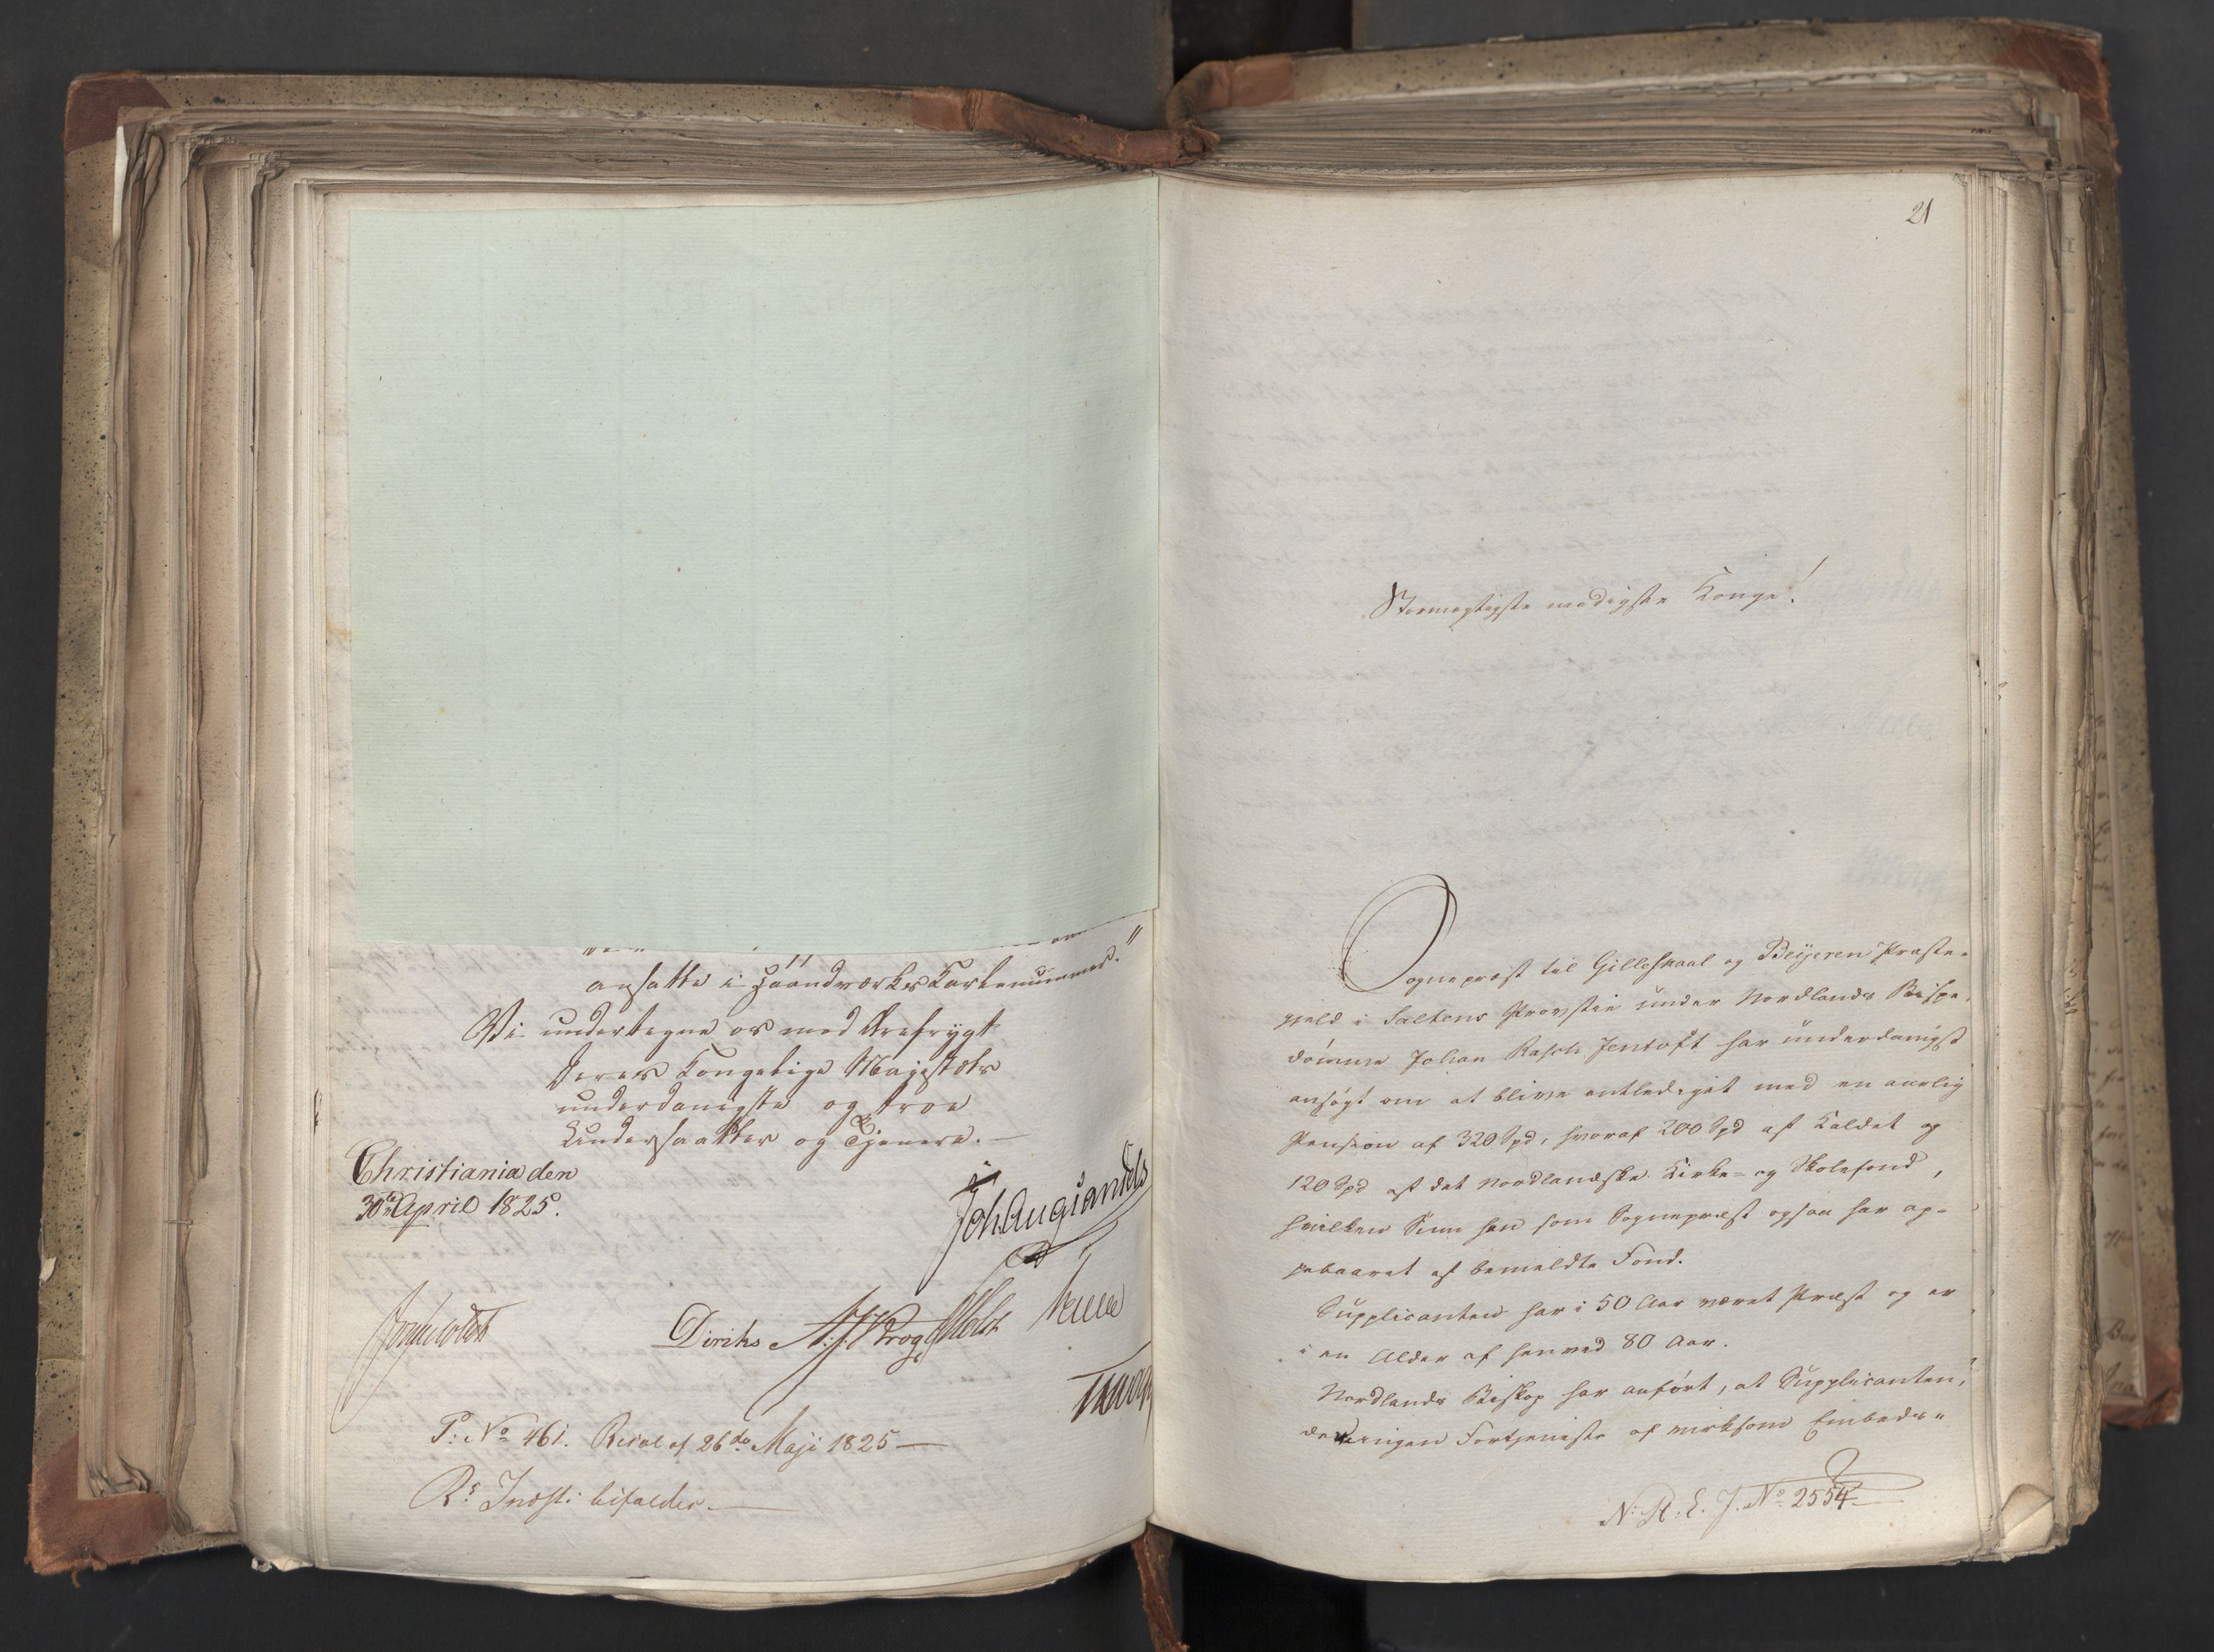 ansatte i Haandværks Kartenummer."
Vi undertegne os med Ærefrygt
Deres Kongelige Majestæts
underdanigste og troe
Undersaatter og Tjenere. —
Christiania den
30te April 1825.
Joh Aug Sandels
Diriks Krog Motz
P: No 461. Resol af 26de Maji 1825 —
Rs Indst: bifaldes. —
21
Stormægtigste naadigste Konge!
Sognepræst til Gilleskaal og Beijeren Præste-
gjeld i Saltens Provstie under Nordlands Bispe-
dømme Johan Rasch Jentoft har underdanigst
ansøgt om at blive entlediget med en aarlig
Pension af 320 Spd, hvoraf 200 Spd af Kaldet og
120 Spd af det Nordlandske Kirke- og Skolefond,
hvilken Sum han som Sognepræst ogsaa har op-
pebaaret af bemeldte Fond.
Supplicanten har i 50 Aar været Præst og er
i en Alder af henved 80 Aar.
Nordlands Biskop har anført, at Supplicanten,
Fortjeneste af virksom Embeds-
N: R: E. J. No 2554